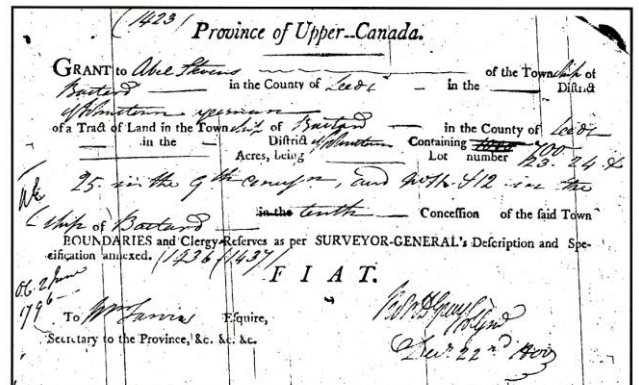 (1423)
Province of Upper-Canada.
GRANT to Abel Stevens of the Township of
Bastard in the County of Leeds in the District
of Johnstown yeoman
of a Tract of Land in the Township of Bastard in the County of Leeds
in the District of Johnstown Containing 700
Acres, being Lot number 23. 24 &
25. in the 9th concession, and in the
in the tenth Concession of the said Town
ship of Bastard
BOUNDARIES and Clergy-Reserves as per SURVEYOR-GENERAL's Description and Spe-
cification annexed. (1436 (1437)
FIAT.
O.C. 2 June
1796
To Wm Jarvis Esquire,
Secretary to the Province, &c. &c. &c.
22nd